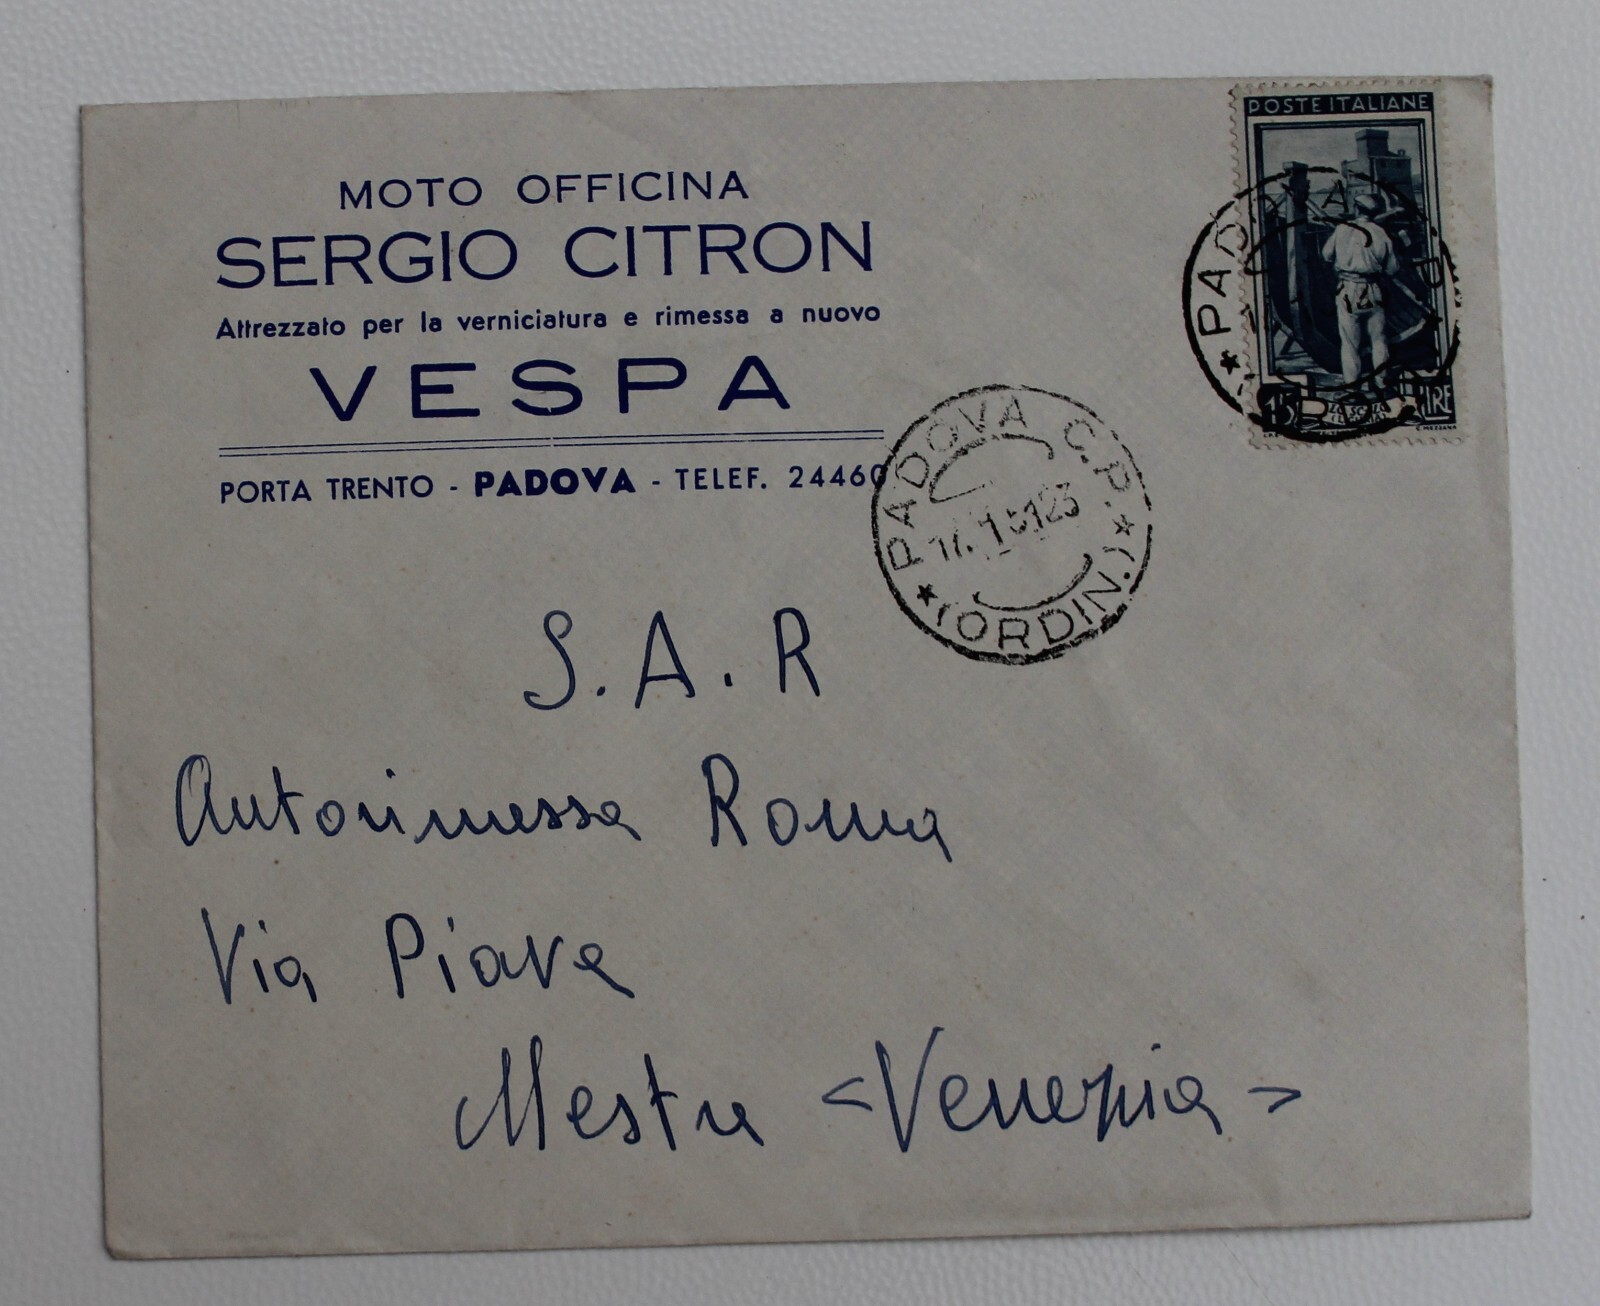 MOTO OFFICINA
SERGIO CITRON
Attrezzato per la verniciatura e rimessa a nuovo
VESPA
PORTA TRENTO - PADOVA - TELEF. 24460
POSTE ITALIANE
15 LIRE
PADOVA
PADOVA C.P.
(ORDIN.)
S. A. R
Autorimessa Roma
Via Piave
Mestre <Venezia>